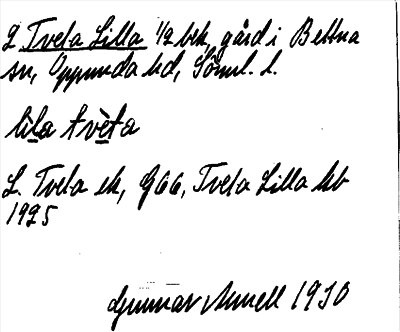 2 Tveta Lilla 1/2 bek, gård i Bettna
sn, Oppunda hd, Söml. l.
lila tvèta
L. Tveta ek, G66, Tveta Lilla hb
1925
Gunnar 1930